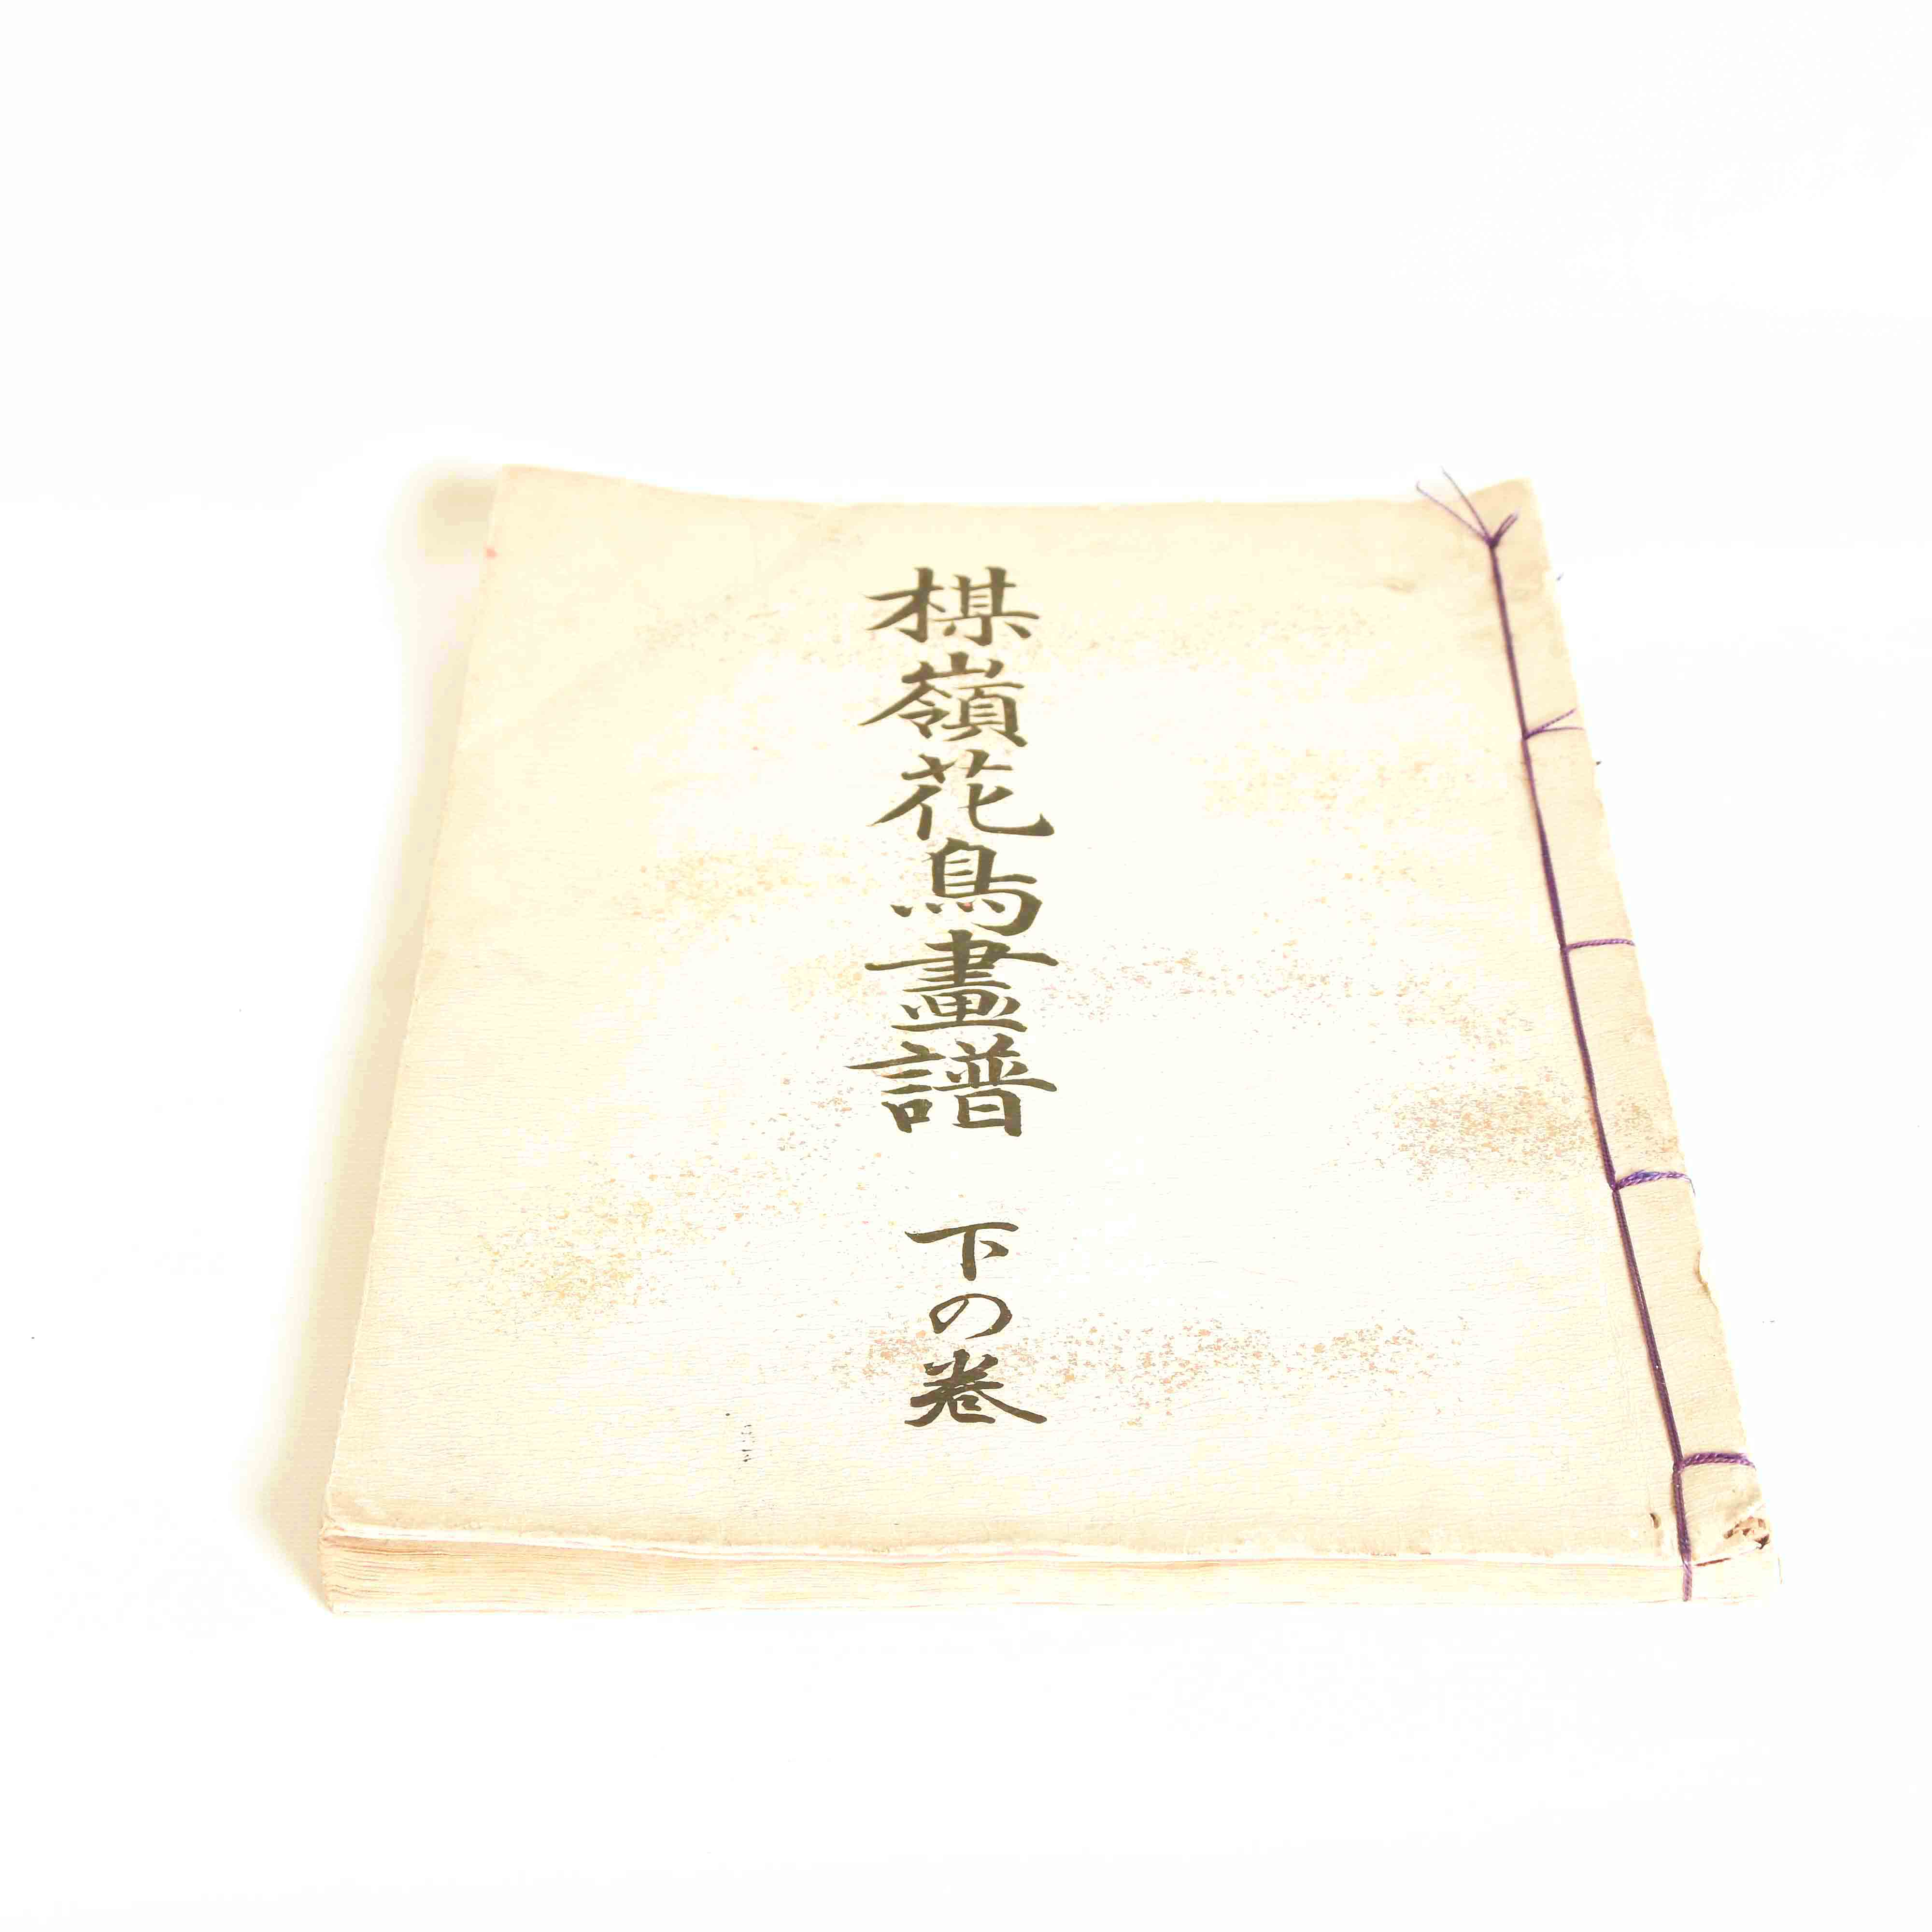 楳嶺花鳥畫譜 下の巻